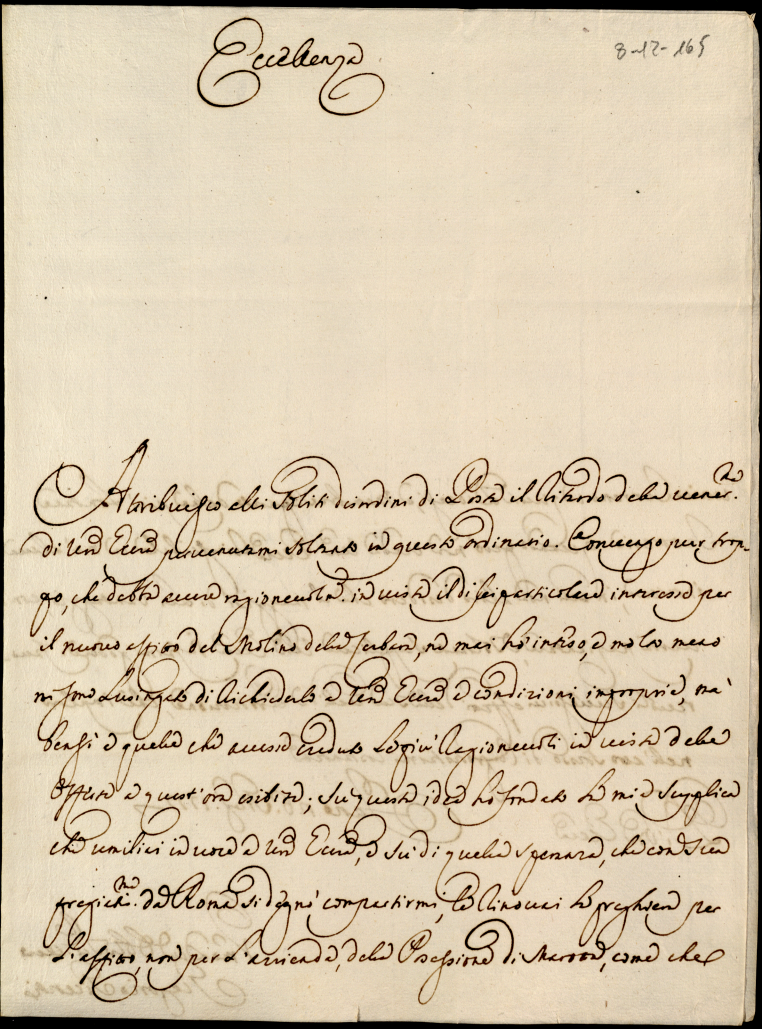 8-12-165
Eccellenza
Attribuisco alli soliti disordini di Posta il ritardo della vener.ma
di Vra Eccza pervenutami soltanto in questo ordinario. Convengo pur trop-
po, che debba avere ragionevolme. in vista il di lei particolare interesse per
il nuovo affitto del Molino della, ne mai hò inteso, e molto meno
mi sono lusingato di richiederlo a Vra Eccza a condizioni improprie, ma'
bensì a quelle che avesse creduto le più ragionevoli in vista delle
offerte a quest'ora esibite; sù questa idea hò fondato la mia supplica
che umiliai in voce a Vra Eccza, e sù di quella speranza, che con sua
pregiatma. da Roma si degnò compartirmi, le rinovai le preghiere per
l'affitto, non per l'azienda, della Possessione di, come che